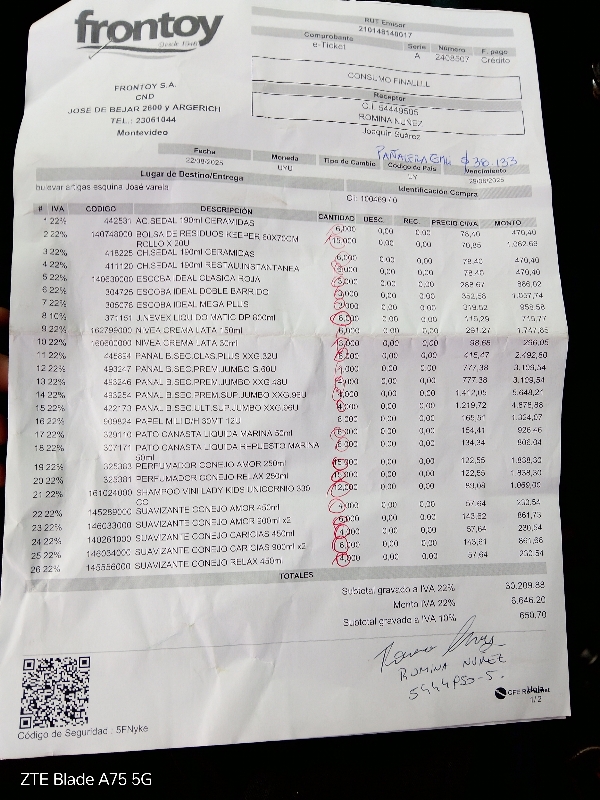 frontoy
Desde 1946
FRONTOY S.A.
CND
JOSE DE BEJAR 2600 y ARGERICH
TEL.: 23061044
Montevideo
RUT Emisor
210148140017
Comprobante Serie Número F. pago
e-Ticket A 2408307 Crédito
CONSUMO FINAL
Receptor
C.I. 54449505
ROMINA NUÑEZ
Joaquin Suárez
PAÑALERA EMI $ 38.133
Fecha Moneda Tipo de Cambio Código de País Vencimiento
22/08/2025 UYU UY
Lugar de Destino/Entrega Identificación Compra
bulevar artigas esquina José varela CI: 100469 / 0
# IVA CODIGO DESCRIPCIÓN CANTIDAD DESC. REC. PRECIO C/IVA MONTO
1 22% 442531 AC.SEDAL 190ml CERAMIDAS 6,000 0,00 0,00 78,40 470,40
2 22% 140748000 BOLSA DE RESIDUOS KEEPER 60X75CM 15,000 0,00 0,00 70,85
ROLLO X 20U
3 22% 418225 CH.SEDAL 190ml CERAMIDAS 6,000 0,00 0,00 78,40 470,40
4 22% 411120 CH.SEDAL 190ml RESTAU.INSTANTANEA 0,00 0,00 78,40 470,40
5 22% ESCOBA IDEAL CLASICA ROJA 0,00 0,00
6 22% 304725 ESCOBA IDEAL DOBLE BARRIDO 0,00 0,00
7 22% 305076 ESCOBA IDEAL MEGA PLUS 0,00 0,00
8 10% 371151 J.NEVEX LIQUIDO MATIC DP 800ml 0,00 0,00
9 22% 162799000 NIVEA CREMA LATA 150ml 6,000 0,00 0,00 291,27 1.747,65
10 22% NIVEA CREMA LATA 0,00 0,00 98,68
11 22% 445894 PAÑAL B.SEC.CLAS.PLUS XXG.32U 0,00 0,00 415,47
12 22% 493247 PAÑAL B.SEC.PREM.JUMBO G.60U 0,00 0,00 777,38 3.109,54
13 22% 493246 PAÑAL B.SEC.PREM.JUMBO XXG.48U 0,00 0,00 777,38 3.109,54
14 22% 493254 PAÑAL B.SEC.PREM.SUP.JUMBO XXG.96U 0,00 0,00 1.412,05 5.648,21
15 22% 422173 PAÑAL B.SEC.ULT.SUP.JUMBO XXG.96U 0,00 0,00 1.219,72 4.878,88
16 22% 509824 PAPEL MILI D/H 30MT 12U 0,00 0,00
17 22% 329110 PATO CANASTA LIQUIDA MARINA 50ml 0,00 0,00 154,41 926,46
18 22% 307171 PATO CANASTA LIQUIDA REPUESTO MARINA 0,00 0,00 134,34 806,04
50ml
19 22% 325383 PERFUMADOR CONEJO AMOR 250ml 15,000 0,00 0,00 122,55 1.838,30
20 22% 325381 PERFUMADOR CONEJO RELAX 250ml 0,00 0,00 122,55 1.838,30
21 22% 161024000 SHAMPOO VINI LADY KIDS UNICORNIO 330 12,000 0,00 0,00
CC
22 22% 145289000 SUAVIZANTE CONEJO AMOR 450ml 4,000 0,00 0,00 57,64 230,54
23 22% 146033000 SUAVIZANTE CONEJO AMOR 900ml x2 0,00 0,00
24 22% 140261000 SUAVIZANTE CONEJO CARICIAS 450ml 4,000 0,00 0,00 57,64 230,54
25 22% 146034000 SUAVIZANTE CONEJO CARICIAS 900ml x2 6,000 0,00 0,00 143,61 861,66
26 22% 145556000 SUAVIZANTE CONEJO RELAX 450ml 4,000 0,00 0,00 57,64 230,54
TOTALES
Subtotal gravado a IVA 22% 30.209,88
Monto IVA 22% 6.646,20
Subtotal gravado a IVA 10% 650,70
ROMINA NUÑEZ
Código de Seguridad : 5FNyke
Hoja
1/2
ZTE Blade A75 5G